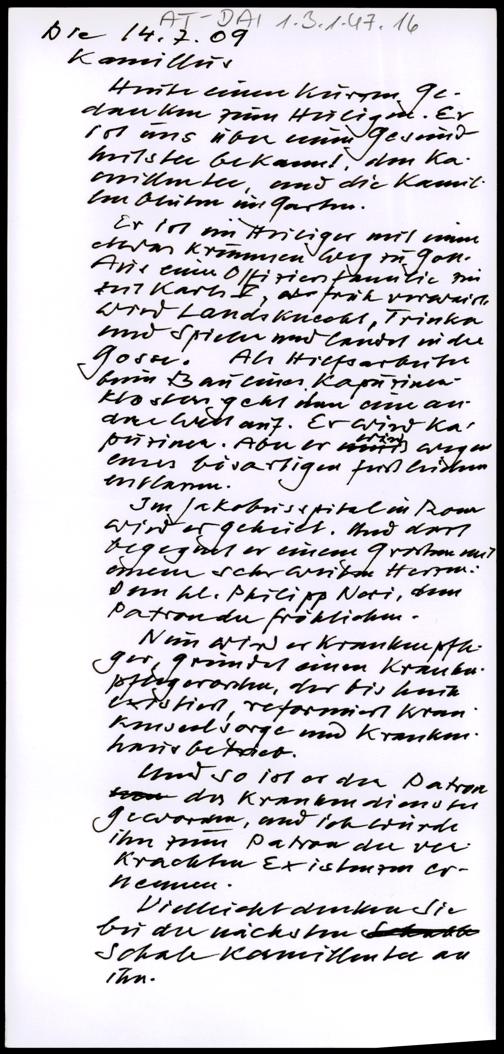 AT-DAI 1.3.1.47.16
Die 14.7.09
Kamillus
Heute einen kurzen Ge-
danken zum Heiligen. Er
ist uns über einen Gesund
heitstee bekannt, den Ka-
millentee, und die Kamil-
lenblüten im Garten.
Er ist ein Heiliger mit einem
etwas krummen Weg zu Gott.
Aus einer Offiziersfamilie zur
Zeit Karls V, der früh verwaist
wird Landsknecht, Trinker
und Spieler und landet in der
Gosse. Als Hilfsarbeiter
beim Bau eines Kapuziner-
klosters geht ihm eine an-
dere Welt auf. Er wird Ka-
puziner. Aber er wird wegen
eines bösartigen Fußleidens
entlassen.
Im Jakobusspital in Rom
wird er geheilt. Und dort
begegnet er einem Großen mit
einem sehr weiten Herzen:
Dem hl. Philipp Neri, dem
Patron der Fröhlichen.
Nun wird er Krankenpfle-
ger, gründet einen Kranken-
pflegerorden, der bis heute
existiert, reformiert Kran-
kenseelsorge und Kranken-
hausbetrieb.
Und so ist er der Patron
des Krankendienstes
geworden, und ich würde
ihn zum Patron der ver-
krachten Existenzen er-
nennen.
Vielleicht denken Sie
bei der nächsten
Schale Kamillentee an
ihn.